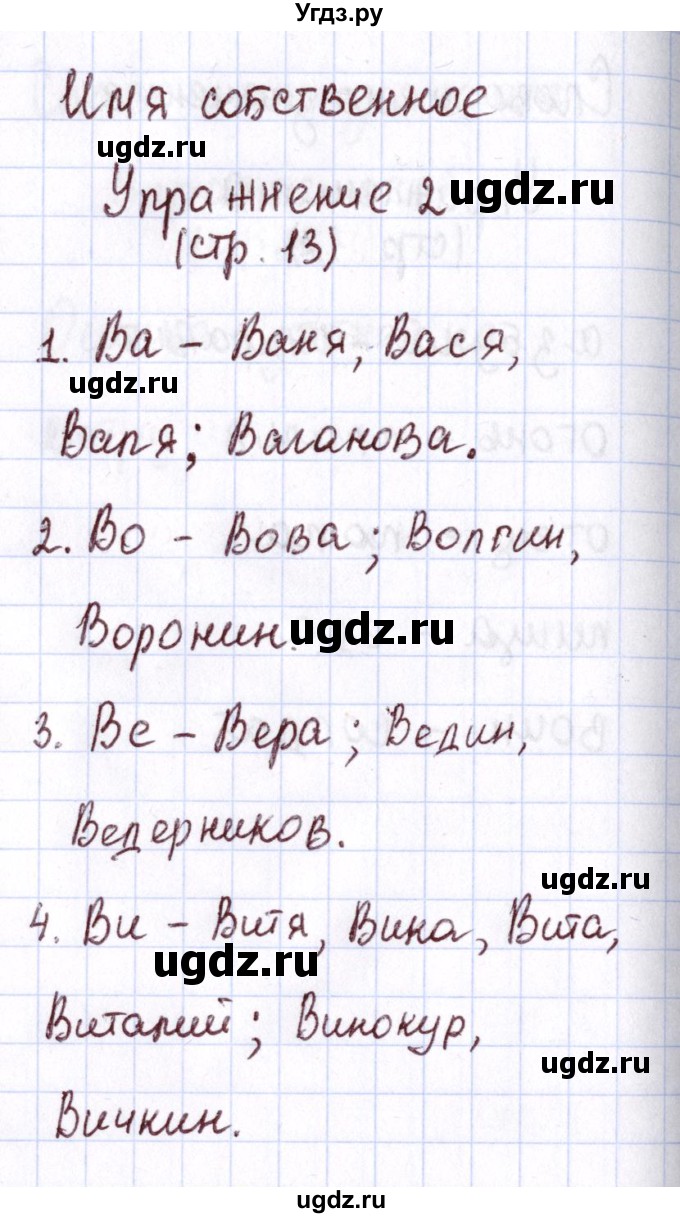 Угдз.ру
Имя собственное
ugdz.ru
Упражнение 2 ugdz.ru
(стр. 13)
1. Ва – Ваня, Вася,
ugdz.ru
Валя; Ваганова.
2. Во – Вова; Волгин,
Воронин. ugdz.ru
3. Ве – Вера; Ведин,
Ведерников.
ugdz.ru
4. Ви – Витя, Вика, Вита,
ugdz.ru
Виталий; Винокур,
ugdz.ru
Вичкин.
ugdz.ru